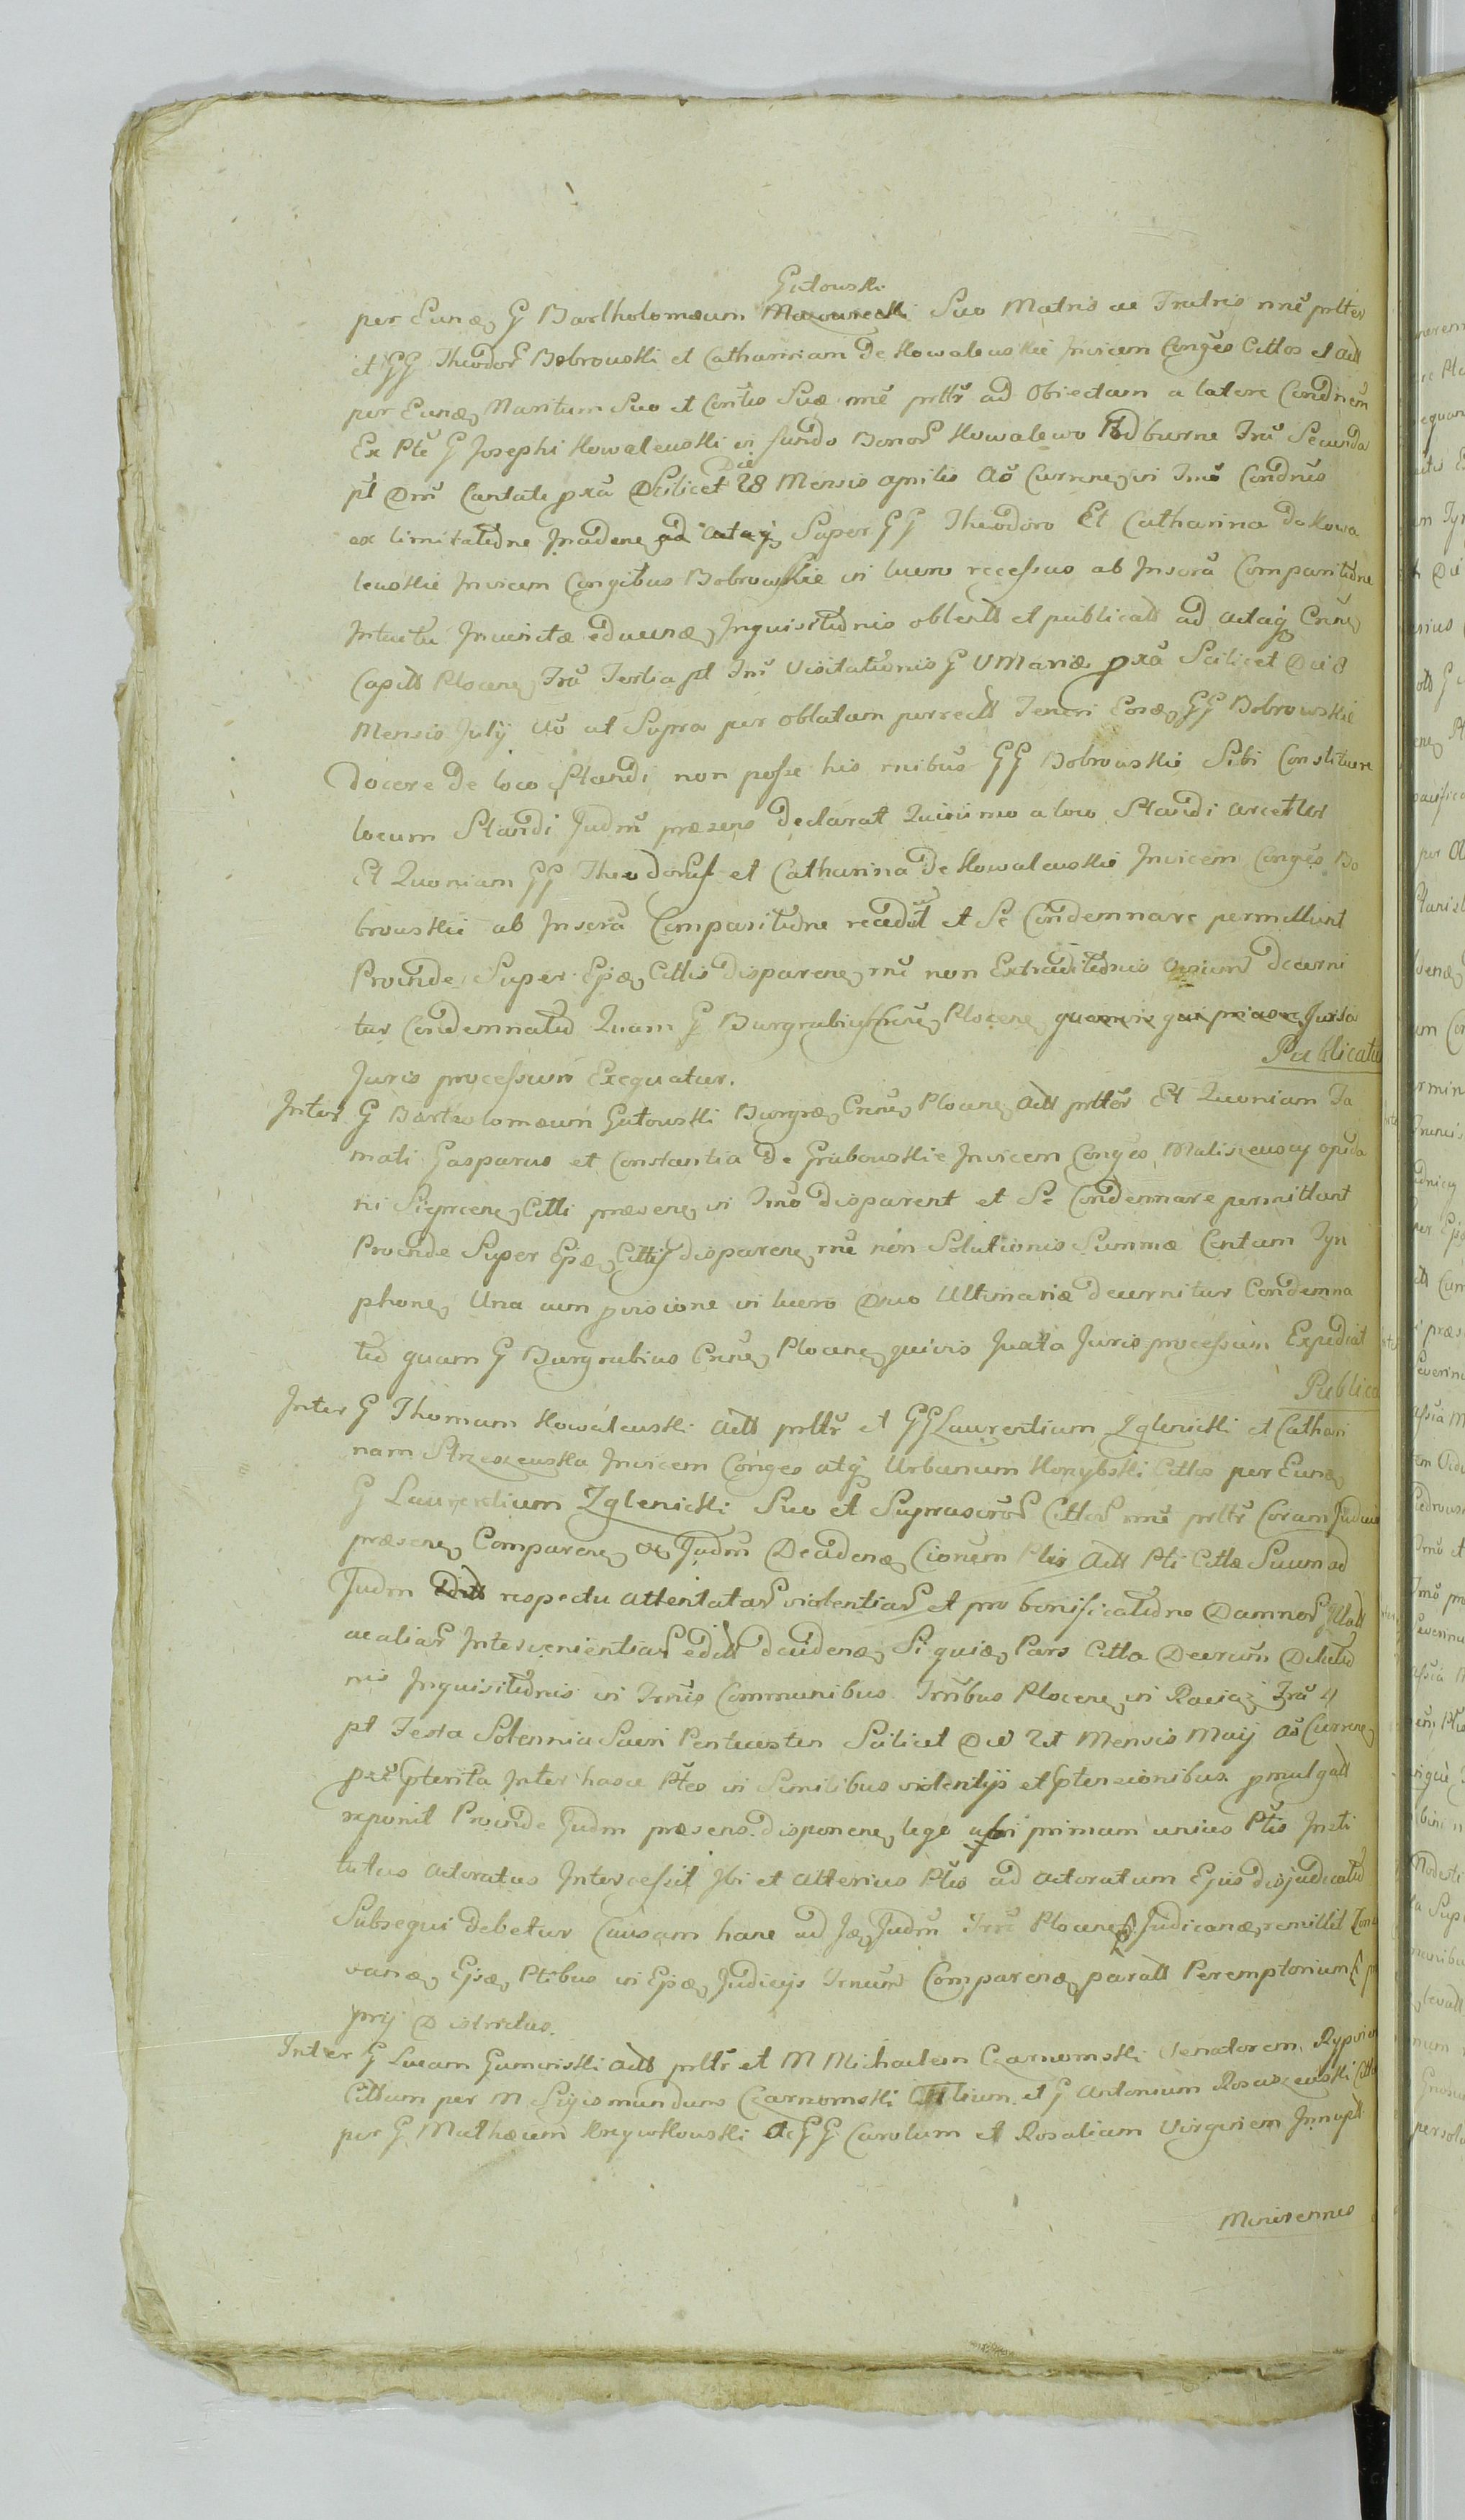 Gutowski
per Eund G Bartholomæum Mazowiecki Suo Matris ac Fratris nne prltes
et GG Theodor Bobrowski et Catharinam de Kowalewskie Invicem Conges Cittos et Actt
per Eund Maritum Suo et Contis Suæ nne prltr ad Obiectam a latere Condnem
Ex Pte G Josephi Kowalewski in fundo Bonor Kowalewo Podburne Fria Secunda
Die
pt Dm Cantate pxa Scilicet 28 Mensis Aprilis Ao Curren in Tmo Condnis
ex limitatione Inaden ad acta Super GG Theodoro Et Catharina de Kowa
lewskie Invicem Congibus Bobrowskie in lucro recessus ab Inscra Comparitione
Intuitu Iniunctæ educenæ Inquisitionis oblentt et publicatt ad actaq Crne
Capitt Plocen Fria Tertia pt Fm Visitationis G V Mariæ pxa Scilicet Die 8
Mensis July Ao ut Supra per oblatam perrectt Teneri Eosd GG Bobrowskie
docere de loco Standi non posse his rnibus GG Bobrowskie Sibi Constituere
locum Standi Judm præsens declarat Quinimo a loco Standi arcettur
Et Quoniam GG Theodorus et Catharina de Kowalewskie Invicem Conges Bo
browskie ab Inscra Comparitione recedut et Se Condemnare permittunt
Proinde Super Eisd Cittis disparen rne non Extraditionis decerni
tur Condemnatio Quam G Burgrabius Crne Plocen Juxta
Publicatu
Juris processum Exequatur.
Inter G Bartholomæum Gutowski Burgræ Crne Plocen Actt prltor Et Quoniam Fa
mati Gasparus et Constantia de Grabowskie Invicem Conges Maliszewscy opida
ni Sieprcen Citti præsen in Tmo disparent et Se Condemnare permittunt
Proinde Super Eisd Cittis disparen rne non Solutionis Summæ Centum Tyn
phone Una cum provisione in lucro Duo Ultimariæ decernitur Condemna
tio quam G Burgrabius Crne Plocen quivis Juxta Juris processum Expediat
Publica
Inter G Thomam Kowalewski Actt prltr et GG Laurentium Zglenicki et Cathari
nam Strzeszewska Invicem Conges atq Urbanum Korzybski Cittos per Eund
G Laurentium Zglenicki Suo et Suprascror Cittor nne prltr Coram Judicio
præsen Comparen ex Judm Decidend Cionem Ptis Actt Pti Cittæ Suum ad
Judm respectu attentatar violentiar et pro bonificatione Damnor Illatt
ac aliar Intervenientiar editt decidend Si quid Pars Citta Decrum Dilatio
nis Inquisitionis in Tmis Communibus Trribus Plocen in Raciąż Fria 4
pt Festa Solennia Sacri Pentecosten Scilicet Die Mensis Maij Ao Curren
præterita Inter hasce Ptes in Similibus violentijs et ptensionibus pmulgatt
reponit Proinde Judm præsens disponen lege ubi primam unius Ptis Insti
tutus Actoratus Intercessit Ibi et alterius Ptis ad Actoratum Ejus disjudicatio
Subsequi debetur Causam hanc ad Id Judm Trre Plocen Judicand remittit Conser
vand Eisd Ptibus in Eisd Judicijs Trnum Comparend paratt Peremptorium
prij Districtus.
Inter G Lucam Gumowski Actt prltr et M Michaelem Czarnomski Venatorem Rypinen
Cittum per M Sigismundum Czarnomski Filium et G Antonium Rosciszewski Citt
per G Mathæum Krzywkowski Ac GG Carolum et Rosaliam Virginem Innupt
Minorennes